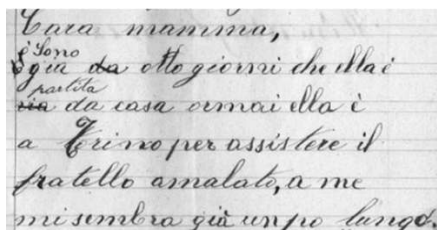 Cara mamma,
Sono
già da otto giorni che ella è
partita
via da casa ormai ella è
a Trino per assistere il
fratello amalato, a me
mi sembra già un po lungo,